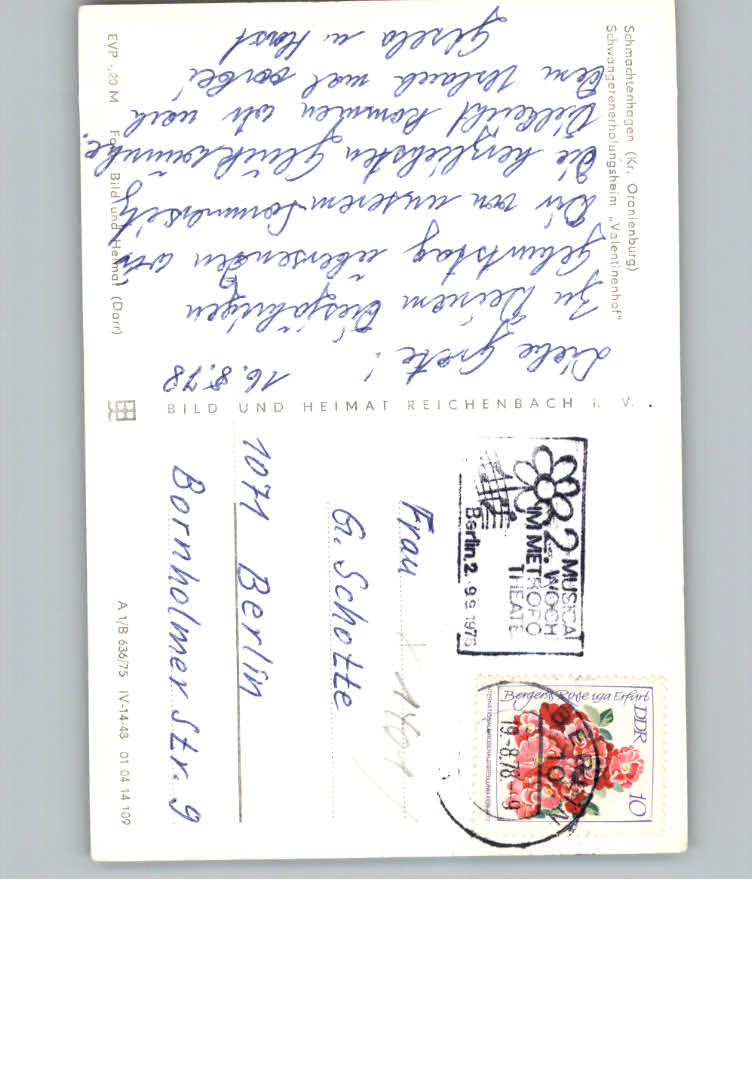 Schmachtenhagen (Kr. Oranienburg)
Schwangerenerholungsheim „Valentinenhof"
16.8.78
Liebe Grete!
Zu Deinem diesjährigen
Geburtstag übersenden wir
Dir von unserem Sommersitz
die herzlichsten Glückwünsche.
Vielleicht kommen wir nach
dem Urlaub mal vorbei!
Gisela u. Horst
EVP -,20 M Foto: Bild und Heimat (Darr)
BILD UND HEIMAT REICHENBACH i. V.
MUSICAL
2. WOCH
IM METROPO
THEATE
Berlin, 2.
DDR
10
Bergers Rose iga Erfurt
BERLIN
10
19.-8.78.-9
Frau
G. Schotte
1071 Berlin
Bornholmer Str. 9
A 1/B 636/75 IV-14-48 01 04 14 109